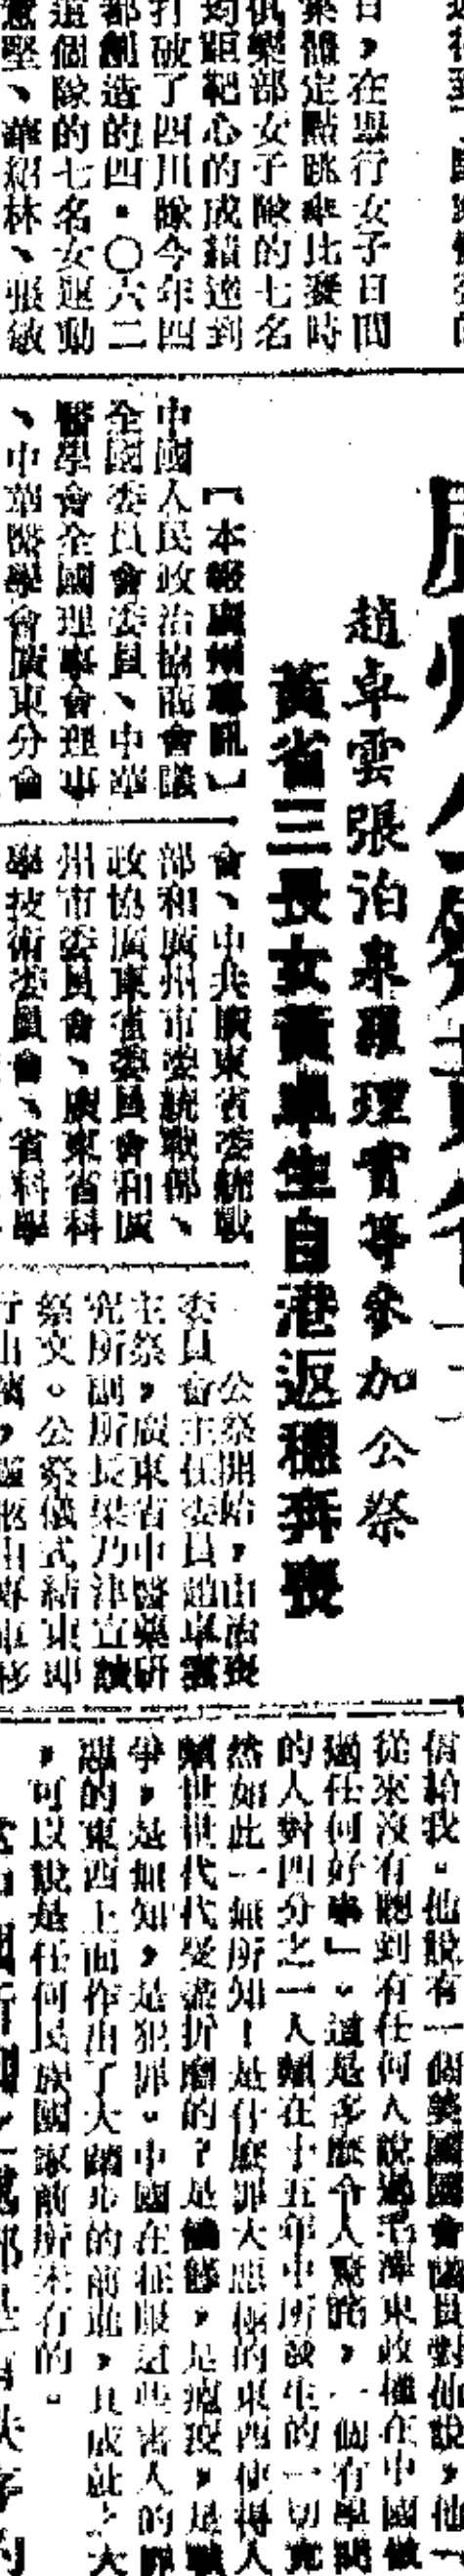 日，在舉行女子日間
集體定點跳傘比賽時
俱樂部女子隊的七名
均距靶心的成績達到
打破了四川隊今年四
都創造的四·〇六二
這個隊的七名女運動
、華紹林、張敏
趙卓雲張泊泉羅理實等參加公祭
黃省三長女黃卓生自港返穗奔喪
【本報廣州專訊】
中國人民政治協商會議
全國委員會委員、中華
醫學會全國理事會理事
、中華醫學會廣東分會
會、中共廣東省委統戰
部和廣州市委統戰部、
政協廣東省委員會和廣
州市委員會、廣東省科
學技術委員會、省科學
公祭開始，由治喪
委員會主任委員趙卓雲
主祭，廣東省中醫藥研
究所副所長梁乃津宣讀
祭文。公祭儀式結束即
信給我。他說有一個美國國會議員對他說，他
從來沒有聽到有任何人說過毛澤東政權在中國做
過任何好事」。這是多麼令人驚詫，一個有學問
的人對四分之一人類在十五年中所發生的一切竟
然如此一無所知！是什麼罪大惡極的東西使得人
類世世代代受盡折磨的？是饑餓，是瘟疫，是戰
爭，是無知，是犯罪。中國在征服這些害人的罪
惡的東西上面作出了大踏步的前進，其成就之大
，可以說是任何民族國家前所未有的。